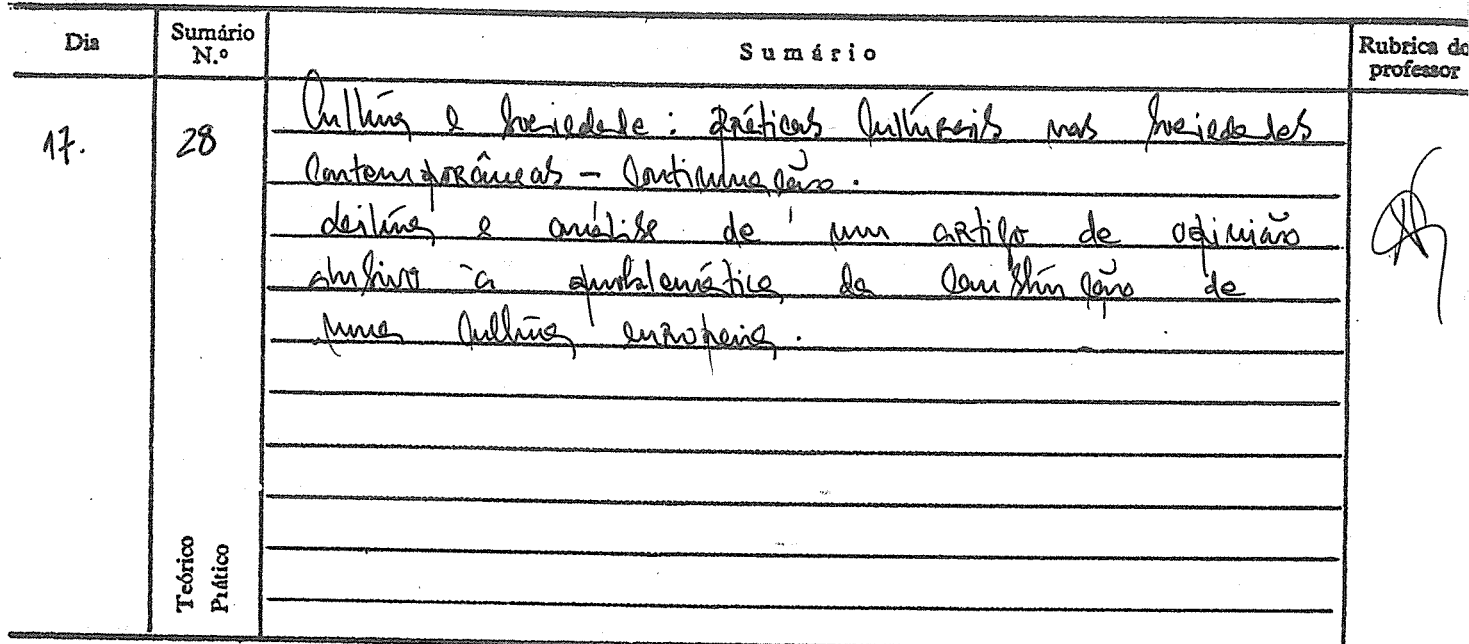 Dia
Sumário N.º
Sumário
Rubrica do professor
17.
28
Cultura e Sociedade: práticas culturais nas sociedades
contemporâneas - continuação.
Leitura e análise de um artigo de opinião
alusivo à problemática da construção de
uma cultura europeia.
Teórico
Prático